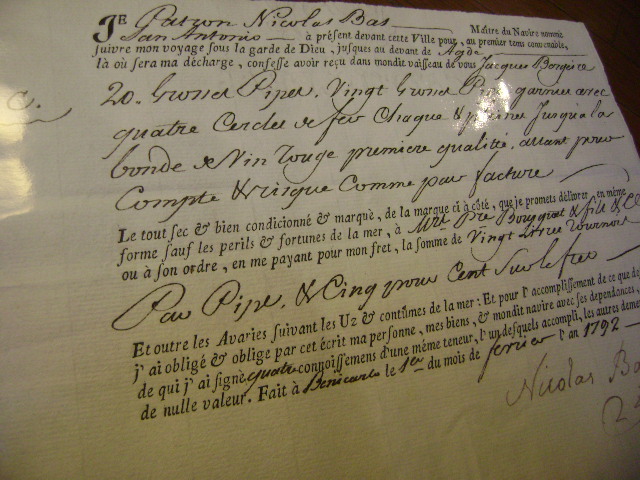 JE Patron Nicolas Bas Maître du Navire nommé
San Antonio à présent devant cette Ville pour, au premier tems convenable,
suivre mon voyage sous la garde de Dieu, jusques au devant de Agde
là où sera ma décharge, confesse avoir reçu dans mondit vaisseau de vous Jacques
20. Grosses Pipes. Vingt Grosses Pipes garnies avec
quatre Cercles de fer Chaque & pleines Jusqu'a la
bonde de Vin Rouge premiere qualité. allant pour
Compte & risque Comme par facture
Le tout sec & bien conditionné & marqué, de la marque ci à côté, que je promets délivrer, en même
forme sauf les perils & fortunes de la mer, à Mrs. Pre Bousquet & fils & C
ou à son ordre, en me payant pour mon fret, la somme de Vingt Livres Tournois
Par Pipe. & Cinq pour Cent sur le fret
Et outre les Avaries suivant les Uz & coutûmes de la mer: Et pour l'accomplissement de ce que de
j'ai obligé & oblige par cet écrit ma personne, mes biens, & mondit navire avec ses dependances,
de qui j'ai signé quatre connoissemens d'une même teneur, l'un desquels accompli, les autres deme
de nulle valeur. Fait à Benicarlo le 1er du mois de fevrier l'an 1792
Nicolas Ba